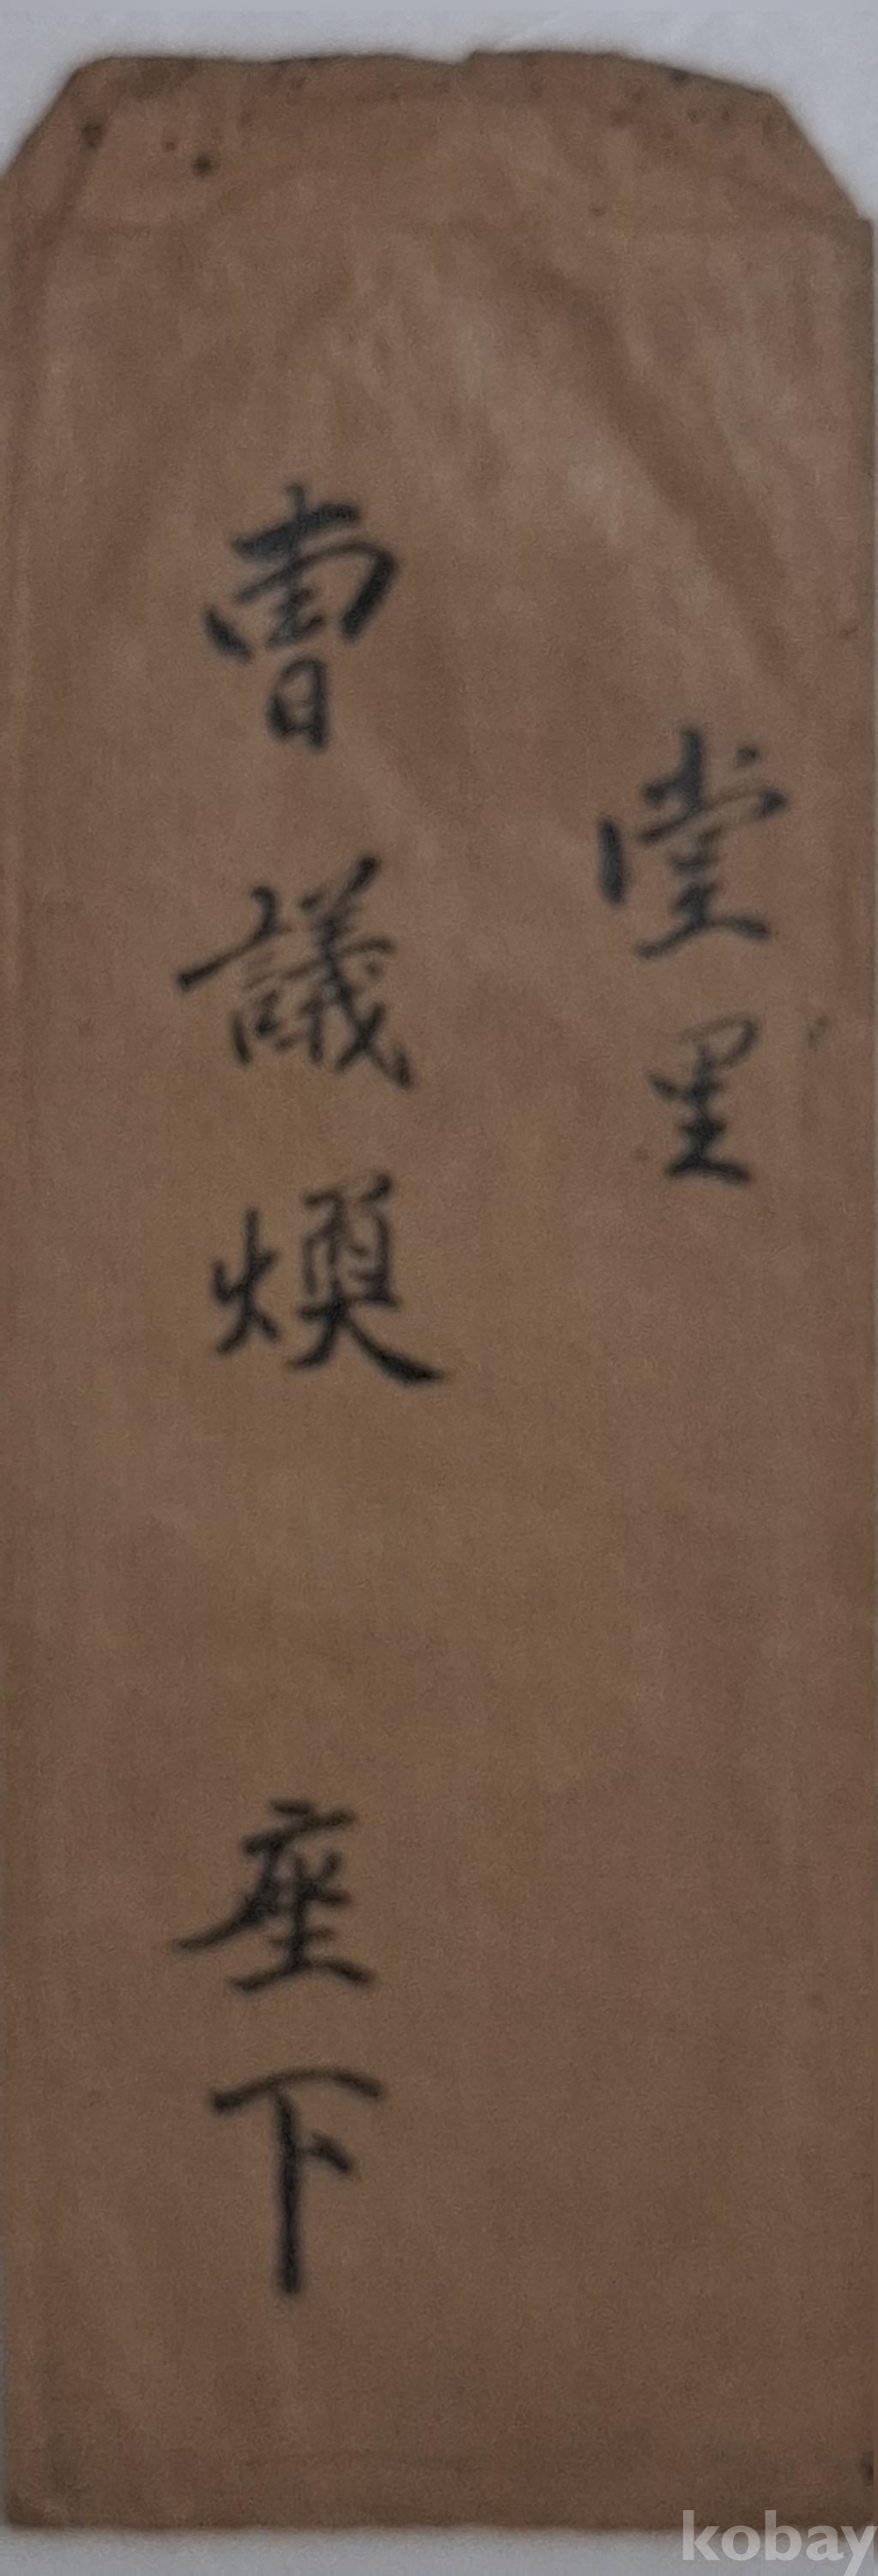 堂里
曺議煥 座下
kobay